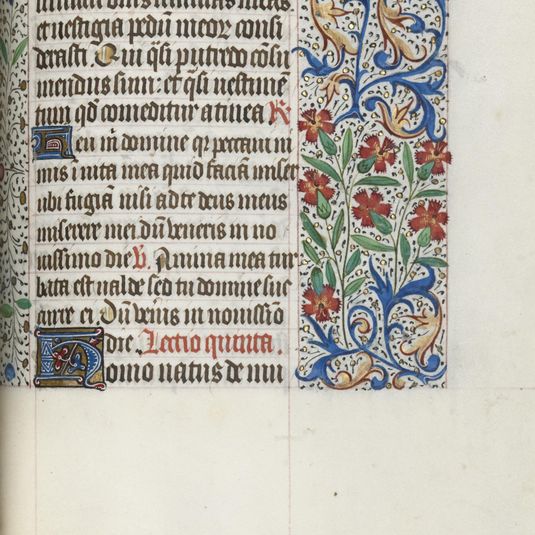 et uestigia pedū meoꝝ consi
derasti. Qui qͣsi putredo cōsu
mendus sum: et qͣsi uestimē
tum qd̄ comeditur a tinea R̃.
Heu m̄ domine qꝛ peccaui ni
mis i uita mea quid faciā miser
ubi fugiā nisi ad te deus meus
miserere mei dū veneris in no
uissimo die V̄. Anima mea tur
bata est ualde sed tu domine suc
curre ei. Dū veneris in nouissīo
dore. Lectio quinta.
Homo natus de mu